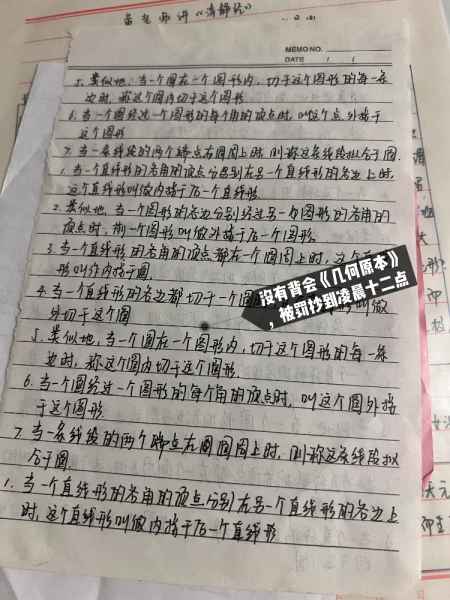 苗老师讲《清静经》
MEMO NO.
DATE / /
5.类似地:当一个圆在一个图形内,切于这个图形的每一条
边时,称这个圆内切于这个图形
6.当一个圆经过一个图形的每个角的顶点时,叫这个点外接于
这个图形
7.当一条线段的两个端点在圆周上时,则称这条线段拟合于圆.
1.当一个直线形的各角的顶点分别在另一个直线形的各边上时,
这个直线形叫做内接于后一个直线形.
2.类似地,当一个图形的各边分别经过另一个图形的各角的
顶点时,前一个图形叫做外接于后一个图形.
3.当一个直线形的各角的顶点都在一个圆周上时,这个
形叫作内接于圆
4.当一个直线形的各边都切于一个圆 叫做
外切于这个圆
5.类似地,当一个圆在一个图形内,切于这个图形的每一条
边时,称这个圆内切于这个图形.
6.当一个圆经过一个图形的每个角的顶点时,叫这个圆外接
于这个图形
7.当一条线段的两个端点在圆圆周上时,则称这条线段拟
合于圆.
1.当一个直线形的各角的顶点分别在另一个直线形的各边上
时,这个直线形叫做内接于后一个直线形
没有背会《几何原本》
,被罚抄到凌晨十二点